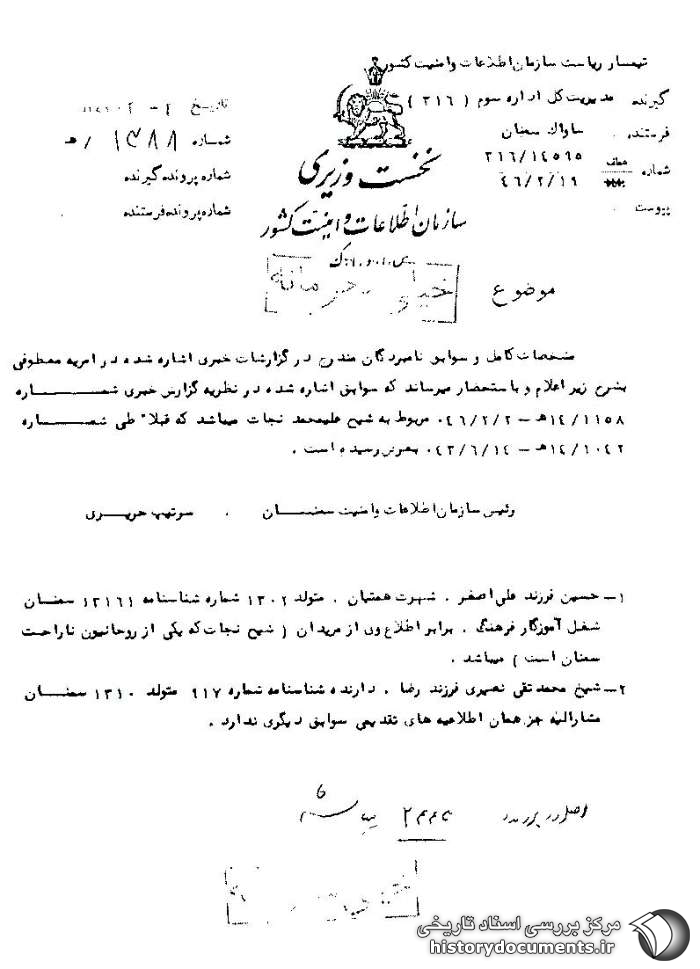 تیمسار ریاست سازمان اطلاعات و امنیت کشور
گیرنده مدیریت کل اداره سوم ( ۳۱۶ )
فرستنده . ساواک سمنان
شماره عطف ۳۱۶/۱۴۵۹۵
۴۶/۲/۱۹
پیوست .
تاریخ
شماره ۱۳۸۸ / ه‍
شماره پرونده گیرنده
شماره پرونده فرستنده
نخست وزیری
سازمان اطلاعات و امنیت کشور
س.ا.و.ا.ک
موضوع
خیلی محرمانه
مشخصات کامل و سوابق نامبردگان مندرج در گزارشات خبری اشاره شده در امریه معطوفی
بشرح زیر اعلام و باستحضار میرساند که سوابق اشاره شده در نظریه گزارش خبری شماره
۱۴/۱۱۵۸ه‍ – ۰۴۶/۲/۲ مربوط به شیخ علیمحمد نجات میباشد که قبلا" طی شماره
۱۴/۱۰۴۲ه‍ – ۰۴۳/۶/۱۴ بعرض رسیده است .
رئیس سازمان اطلاعات و امنیت سمنان . سرتیپ حریری
۱– حسین فرزند علی اصغر . شهرت همتیان . متولد ۱۳۰۲ شماره شناسنامه ۱۳۱۶۱ سمنان
شغل آموزگار فرهنگ . برابر اطلاع وی از مریدان ( شیخ نجات که یکی از روحانیون ناراحت
سمنان است ) میباشد .
۲– شیخ محمدتقی نصیری فرزند رضا . دارنده شناسنامه شماره ۹۱۷ متولد ۱۳۱۰ سمنان
مشارالیه جز همان اطلاعیه های تقدیمی سوابق دیگری ندارد .
اصل در پرونده
مرکز بررسی اسناد تاریخی
historydocuments.ir